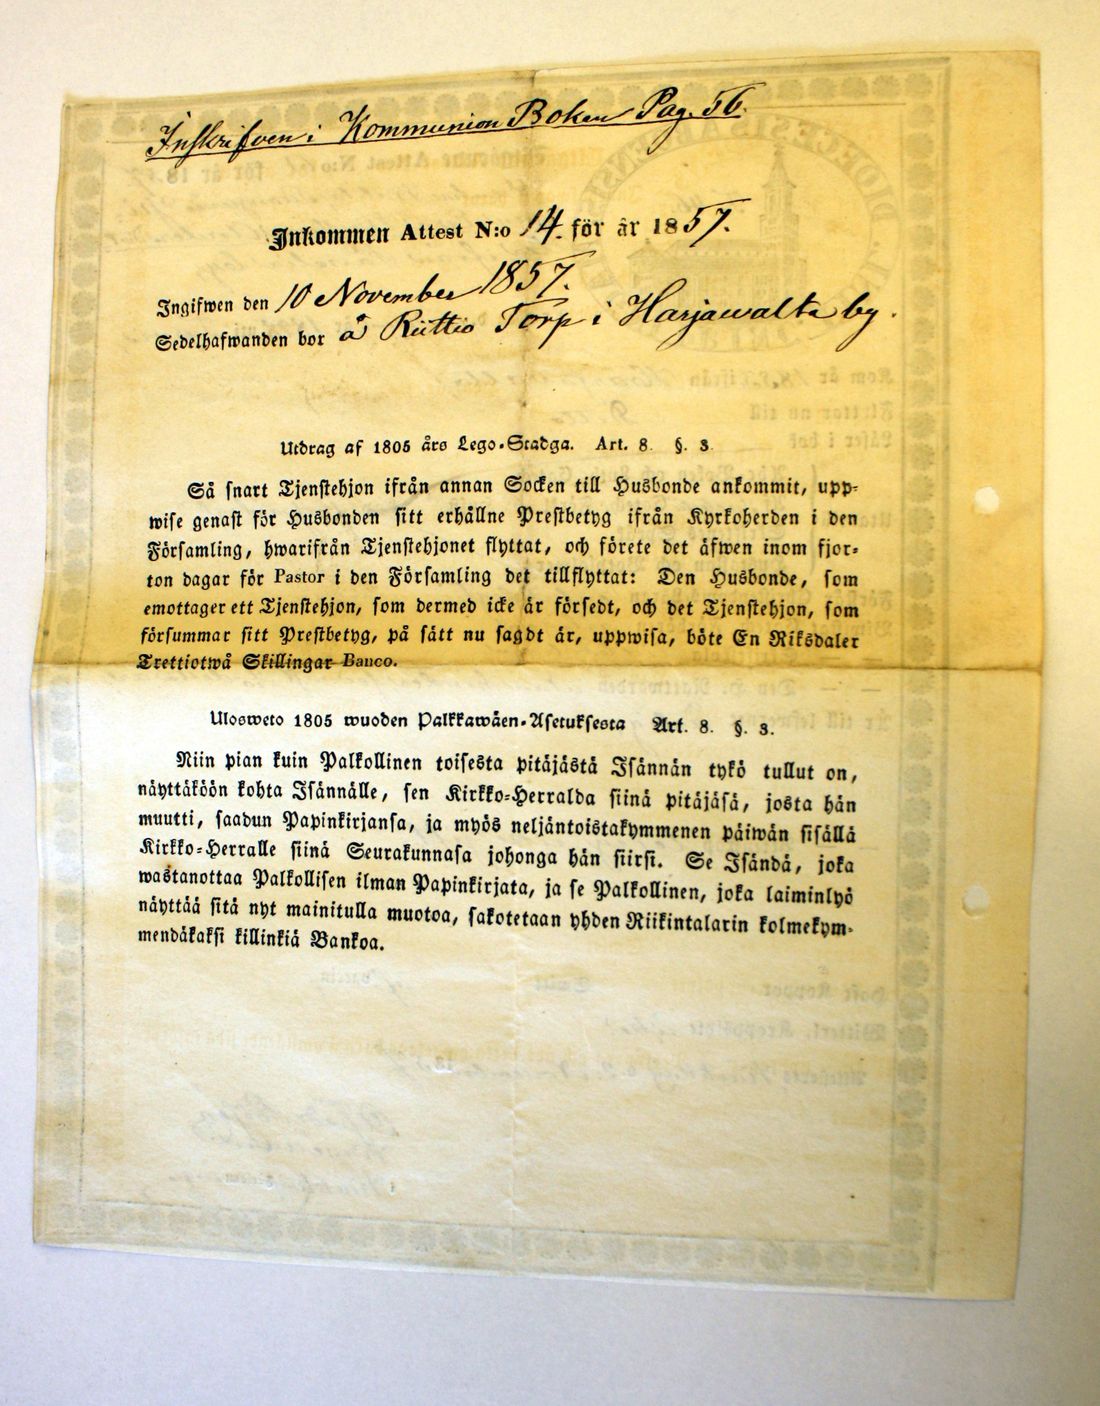 Inskrifven i Kommunion Boken Pag. 56.
Inkommen Attest N:o 14. för år 1857.
Ingifwen den 10 November 1857.
Sedelhafwanden bor å Riittio Torp i Harjawalta by.
Utdrag af 1805 års Lego-Stadga. Art. 8. §. 3.
Så snart Tjenstehjon ifrån annan Socken till Husbonde ankommit, upp-
wise genast för Husbonden sitt erhållne Prestbetyg ifrån Kyrkoherden i den
Församling, hwarifrån Tjenstehjonet flyttat, och förete det äfwen inom fjor-
ton dagar för Pastor i den Församling det tillflyttat: Den Husbonde, som
emottager ett Tjenstehjon, som dermed icke är försedt, och det Tjenstehjon, som
försummar sitt Prestbetyg, på sätt nu sagdt är, uppwisa, böte En Riksdaler
Trettiotwå Skillingar Banco.
Ulosweto 1805 wuoden Palkkawäen-Asetuksesta Art. 8. §. 3.
Niin pian kuin Palkollinen toisesta pitäjästä Isännän tykö tullut on,
näyttäköön kohta Isännälle, sen Kirkko-Herralda siinä pitäjäsä, josta hän
muutti, saadun Papinkirjansa, ja myös neljäntoistakymmenen päiwän sisällä
Kirkko-Herralle siinä Seurakunnasa johonga hän siirsi. Se Isändä, joka
wastanottaa Palkollisen ilman Papinkirjata, ja se Palkollinen, joka laiminlyö
näyttää sitä nyt mainitulla muotoa, sakotetaan yhden Riikintalarin kolmekym-
mendäkaksi killinkiä Bankoa.